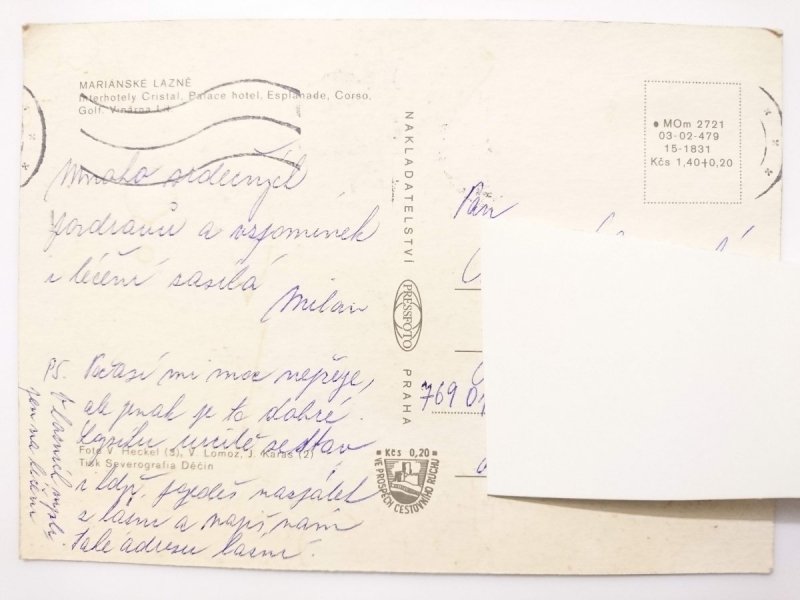 MARIÁNSKÉ LÁZNĚ
Interhotely Cristal, Palace hotel, Esplanade, Corso,
Golf, Vinárna Lil
Mnoho srdečných
pozdravů a vzpomínek
z léčení zasílá
Milan
PS. Počasí mi moc nepřeje,
ale jinak je to dobré.
určitě se stav
Foto V. Heckel (3), V. Lomoz, J. Karas (2)
Tisk Severografia Děčín
i když pojedeš
z lázní a napiš nám
Tale adresu lázní.
jen na léčení
NAKLADATELSTVÍ
PRESSFOTO
PRAHA
• MOm 2721
03-02-479
15-1831
Kčs 1,40+0,20
Pan
769 01
• Kčs 0,20 •
VE PROSPĚCH CESTOVNÍHO RUCHU